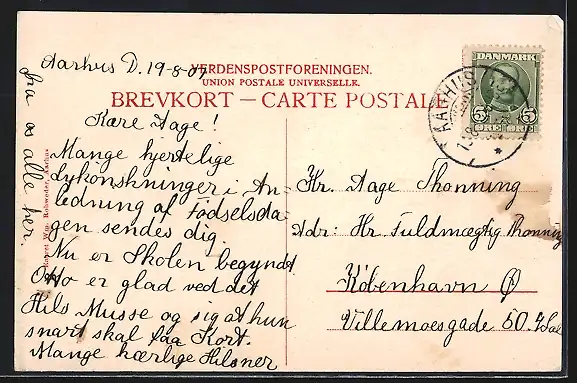 Aarhus D. 19-8-07
VERDENSPOSTFORENINGEN.
UNION POSTALE UNIVERSELLE.
BREVKORT — CARTE POSTALE
DANMARK
5 5
ØRE ØRE
AARHUS
Kære Aage!
Mange hjertelige
Lykønskninger i An-
ledning af Fødselsda-
gen sendes dig.
Nu er Skolen begyndt
Otto er glad ved det
Hils Musse og sig at hun
snart skal faa Kort.
Mange kærlige Hilsner
fra os alle her.
Hr. Aage Thonning
Adr: Hr Fuldmægtig Thonning
København Ø
Villemoesgade 50. 4 Sal